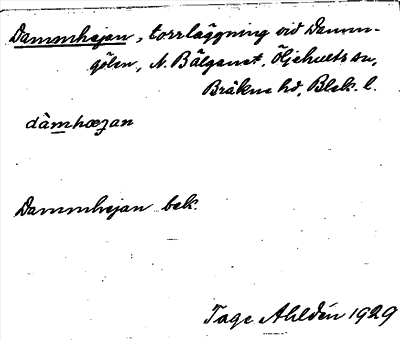 Dammhejan, torrläggning vid Damm-
gölen, N. Bälganet, Öljehults sn,
Bräkne hd, Blek. l.
dàmhœʒan
Dammhejan bek.
Tage Ahldén 1929